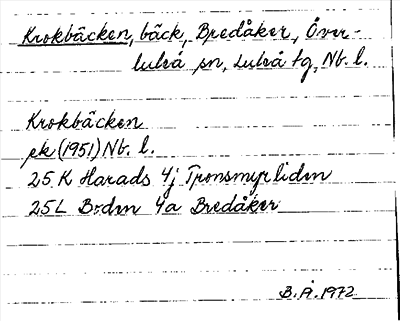 Krokbäcken, bäck, Bredåker, Över-
luleå sn, Luleå tg, Nb. l.
Krokbäcken
ek (1951) Nb. l.
25 K Harads 4j Tronsmyrliden
25 L Boden 4a Bredåker
B.Å. 1972